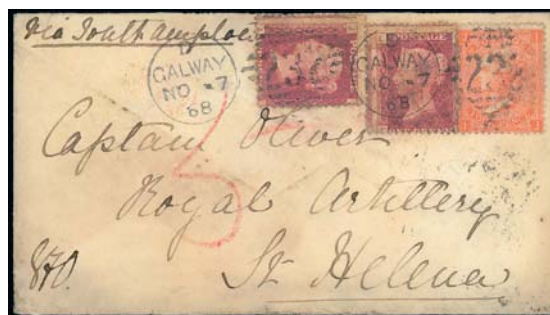 Via Southampton
GALWAY
NO -7
68
GALWAY
NO -7
68
POSTAGE
Captain Oliver
5
Royal Artillery
870.
St Helena